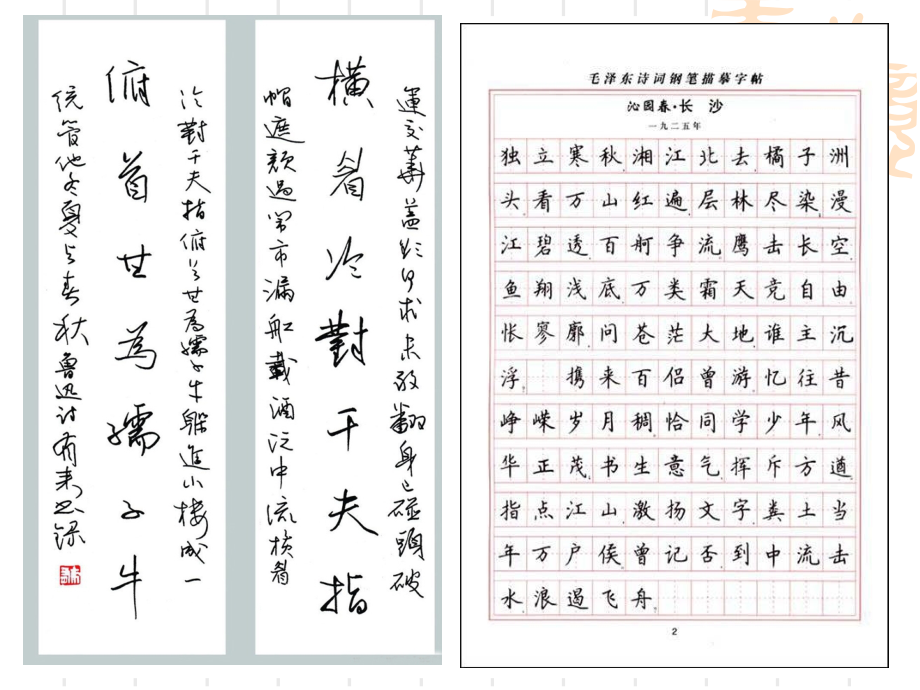 運交華蓋欲何求未敢翻身已碰頭破
横眉冷對千夫指
帽遮顏過鬧市漏船載酒泛中流横眉
冷對千夫指俯首甘為孺子牛躲進小樓成一
俯首甘為孺子牛
统管他冬夏与春秋魯迅诗
毛泽东诗词钢笔描摹字帖
沁园春·长 沙
一九二五年
独立寒秋，湘江北去，橘子洲
头。看万山红遍，层林尽染；漫
江碧透，百舸争流。鹰击长空，
鱼翔浅底，万类霜天竞自由。
怅寥廓，问苍茫大地，谁主沉
浮？ 携来百侣曾游，忆往昔
峥嵘岁月稠。恰同学少年，风
华正茂；书生意气，挥斥方遒。
指点江山，激扬文字，粪土当
年万户侯。曾记否，到中流击
水，浪遏飞舟？
2